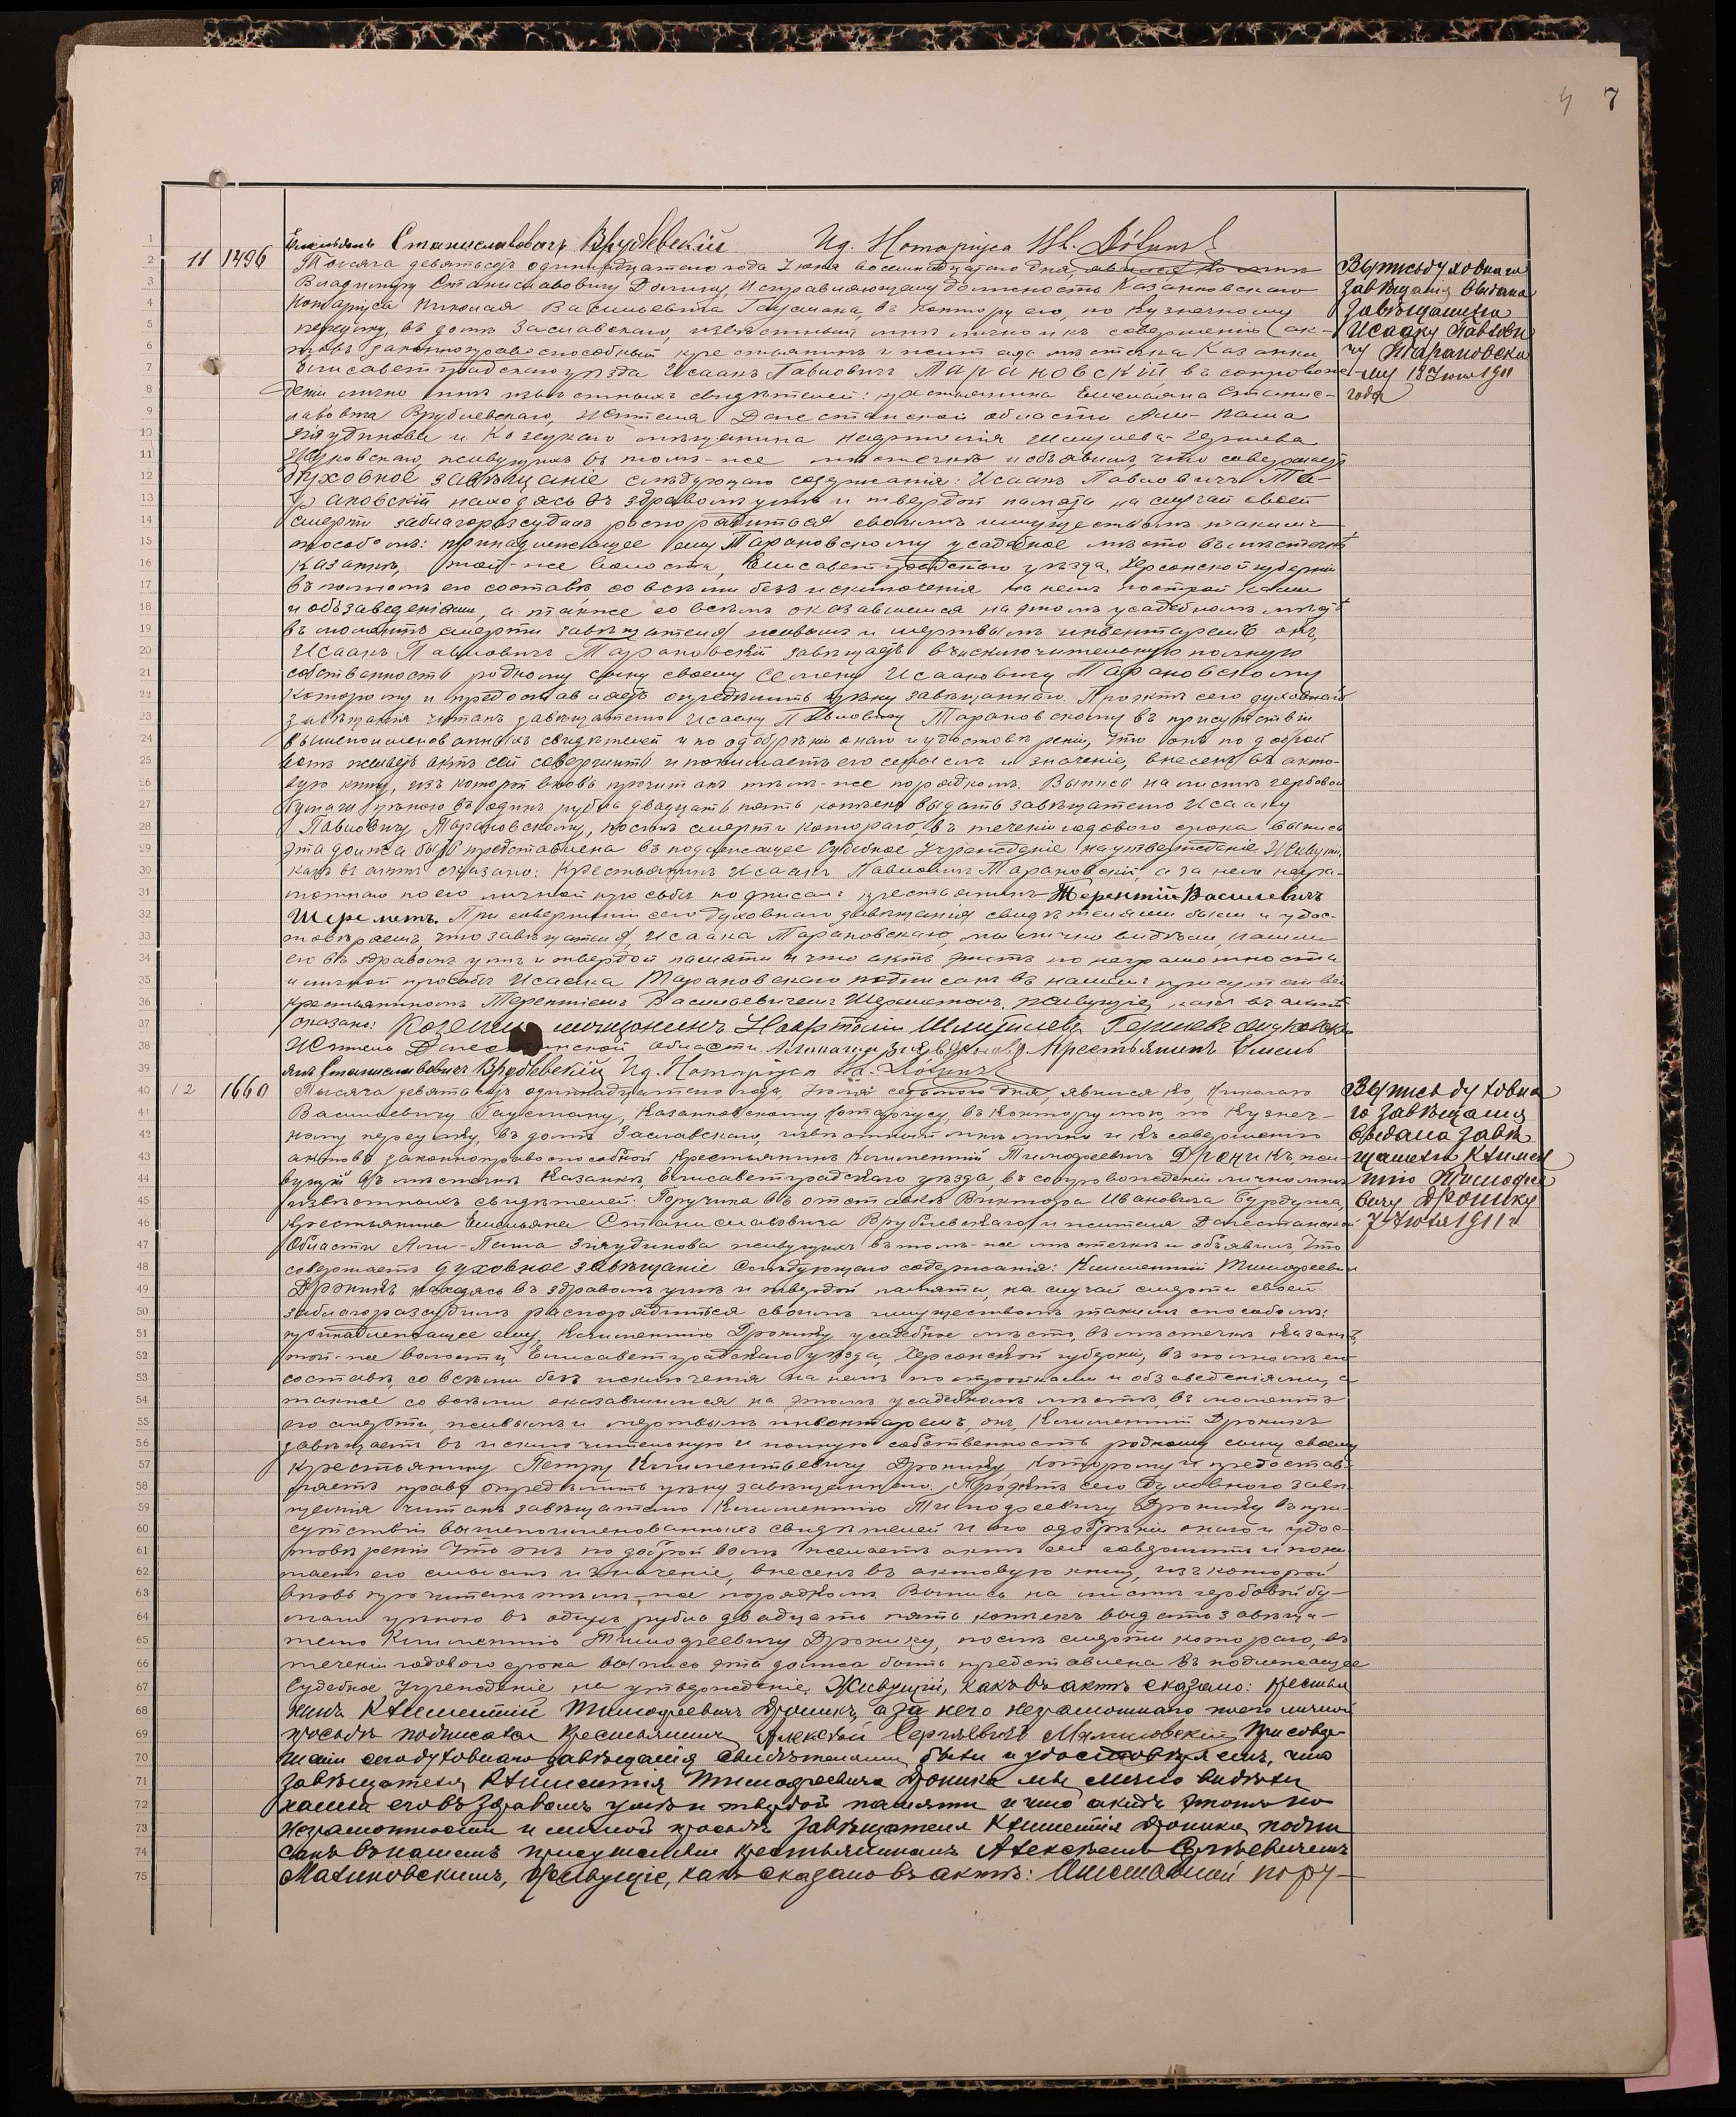 7
Емельянъ Станиславовичъ Врублевскій Ид. Нотаріуса Вл.
11 1496 Тысяча девятьсотъ одиннадцатаго года Іюня восемнадцатаго дня, явился ко мнѣ
Владиміру Станиславовичу Долину, Исправляющему должность Казанковскаго
Нотаріуса Николая Васильевича Гаусмана, въ контору его, по Кузнечному
переулку, въ домъ Заславскаго, извѣстный мнѣ лично и къ совершенію ак-
товъ законноправоспособный крестьянинъ мѣстечка Казанки,
Елисаветградскаго уѣзда Исаакъ Павловичъ Тарановскій, въ сопровож-
деніи лично мнѣ извѣстныхъ свидѣтелей: крестьянина Емельяна Станис-
лавовича Врублевскаго, жителя Дагестанской области Али-Паша
Зіяудинова и Козецкаго мѣщанина Нафтолія Шмуилева-Гершева
Жуковскаго, живущихъ въ томъ-же мѣстечкѣ и объявилъ, что совершаетъ
духовное завѣщаніе слѣдующаго содержанія: Исаакъ Павловичъ Та-
рановскій находясь въ здравомъ умѣ и твердой памяти на случай своей
смерти заблагоразсудилъ распорядиться своимъ имуществомъ такимъ
способомъ: принадлежащее ему Тарановскому усадебное мѣсто въ мѣстечкѣ
Казанкѣ, той-же волости, Елисаветградскаго уѣзда, Херсонской губерніи
въ полномъ его составѣ со всѣми безъ исключенія на немъ постройками
и обзаведеніями, а также со всѣмъ оказавшимся на этомъ усадебномъ мѣстѣ
въ моментъ смерти завѣщателя живымъ и мертвымъ инвентаремъ онъ,
Исаакъ Павловичъ Тарановскій завѣщаетъ въ исключительную полную
собственность родному сыну своему Семену Исааковичу Тарановскому
которому и предоставляетъ опредѣлить цѣну завѣщаннаго. Проэктъ сего духовнаго
завѣщанія читанъ завѣщателю Исааку Павловичу Тарановскому въ присутствіи
вышепоименованныхъ свидѣтелей и по одобреніи онаго и удостовѣреніи, что онъ по доброй
волѣ желаетъ актъ сей совершить и понимаетъ его смыслъ и значеніе, внесенъ въ акто-
вую книгу, изъ которой вновь прочитанъ тѣмъ-же порядкомъ. Выпись на листѣ гербовой
бумаги цѣною въ одинъ рубль двадцать пять копѣекъ выдать завѣщателю Исааку
Павловичу Тарановскому, послѣ смерти котораго, въ теченіи годового срока выпись
эта должна быть представлена въ подлежащее Судебное Учрежденіе на утвержденіе. Живущій,
какъ въ актѣ сказано: Крестьянинъ Исаакъ Павловичъ Тарановскій, а за него негра-
мотнаго по его личной просьбѣ подписалъ крестьянинъ Терентій Васильевичъ
Шереметъ. При совершеніи сего духовнаго завѣщанія свидѣтелями были и удос-
товѣряемъ, что завѣщателя, Исаака Тарановскаго, мы лично видѣли, нашли
его въ здравомъ умѣ и твердой памяти и что актъ этотъ по неграмотности
и личной просьбѣ Исаака Тарановскаго подписанъ въ нашемъ присутствіи
крестьяниномъ Терентіемъ Васильевичемъ Шереметомъ, живущіе, какъ въ актѣ
сказано: мѣщанинъ Нафтолій Шмуилевъ Гершевъ Жуковскій
Житель Дагестанской области Алипаша Зіяудиновъ, Крестьянинъ Емель
янъ Станиславовичъ Врублевскій Ид. Нотаріуса Вл.
12 1660 Тысяча девятьсотъ одиннадцатаго года, Іюля седьмого дня, явился ко, Николаю
Васильевичу Гаусману, Казанковскому Нотаріусу, въ контору мою, по Кузнеч-
ному переулку, въ домѣ Заславскаго, извѣстный мнѣ лично и къ совершенію
актовъ законноправоспособный крестьянинъ Климентій Тимофеевичъ Дроникъ, жи-
вущій въ мѣстечкѣ Казанкѣ, Елисаветградскаго уѣзда, въ сопровожденіи лично мнѣ
извѣстныхъ свидѣтелей: Поручика въ отставкѣ Виктора Ивановича Бурдука,
крестьянина Емельяна Станиславовича Врублевскаго и жителя Дагестанской
Области Али-Паша Зіяудинова живущихъ въ томъ-же мѣстечкѣ и объявилъ, что
совершаетъ духовное завѣщаніе слѣдующаго содержанія: Климентій Тимофеевичъ
Дроникъ находясь въ здравомъ умѣ и твердой памяти, на случай смерти своей
заблагоразсудилъ распорядиться своимъ имуществомъ такимъ способомъ:
принадлежащее ему, Климентію Дронику усадебное мѣсто, въ мѣстечкѣ Казанкѣ,
той-же волости, Елисаветградскаго уѣзда, Херсонской губерніи, въ полномъ его
составѣ, со всѣми безъ исключенія на немъ постройками и обзаведеніями, а
также со всѣмъ оказавшимся на этомъ усадебномъ мѣстѣ, въ моментъ
его смерти, живымъ и мертвымъ инвентаремъ, онъ, Климентій Дроникъ
завѣщаетъ въ исключительную и полную собственность родному сыну своему
крестьянину Петру Климентьевичу Дронику, которому и предостав-
ляетъ право опредѣлить цѣну завѣщаннаго. Проэктъ сего Духовнаго завѣ-
щанія читанъ завѣщателю Климентію Тимофеевичу Дронику въ при-
сутствіи вышепоименованныхъ свидѣтелей и по одобреніи онаго и удос-
товѣреніи что онъ по доброй волѣ желаетъ актъ сей совершить и пони-
маетъ его смыслъ и значеніе, внесенъ въ актовую книгу, изъ которой
вновь прочитанъ тѣмъ-же порядкомъ. Выпись на листѣ гербовой бу-
маги цѣною въ одинъ рубль двадцать пять копѣекъ выдать завѣща-
телю Климентію Тимофеевичу Дронику, послѣ смерти котораго, въ
теченіи годового срока выпись эта должна быть представлена въ подлежащее
Судебное Учрежденіе на утвержденіе. Живущій, какъ въ актѣ сказано: крестья
нинъ Климентій Тимофеевичъ Дроникъ, а за него неграмотнаго по его личной
просьбѣ подписался крестьянинъ Алексѣй Сергѣевичъ Малиновскій. При совер-
шеніи сего духовнаго завѣщанія свидѣтелями были и удостовѣряемъ, что
завѣщателя Климентія Тимофеевича Дроника мы лично видѣли
нашли его въ здравомъ умѣ и твердой памяти и что актъ этотъ по
неграмотности и личной просьбѣ завѣщателя Климентія Дроника подпи
санъ въ нашемъ присутствіи крестьяниномъ Алексѣемъ Сергѣевичемъ
Малиновскимъ, Живущіе, какъ сказано въ актѣ: Отставной пору-
Выпись духовнаго
завѣщанія выдана
завѣщателю
Исааку Павлови
чу Тарановско
му 18 Іюня 1911
года
Выпись духовна
го завѣщанія
выдана завѣ
щателю Климен
тію Тимофее
вичу Дронику
7 Іюля 1911 г